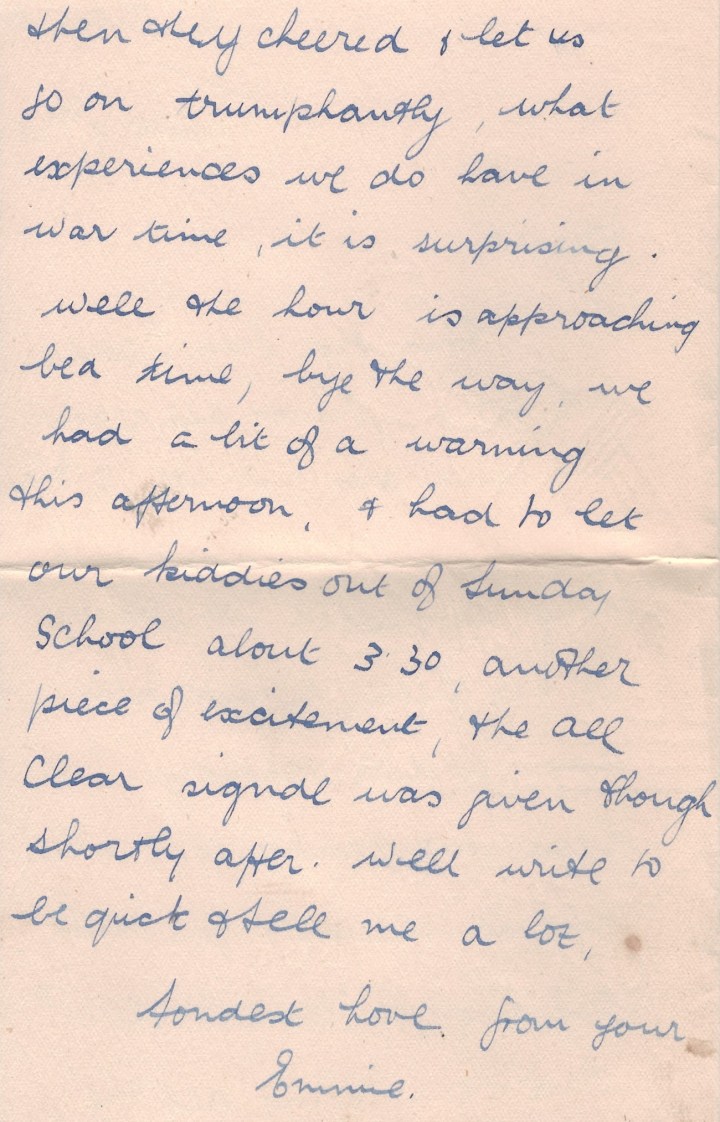 then they cheered & let us
go on trumphantly, what
experiences we do have in
war time, it is surprising.
well the hour is approaching
bed time, bye the way, we
had a bit of a warning
this afternoon, & had to let
our kiddies out of Sunday
School about 3.30, another
piece of excitement, the all
Clear signal was given though
shortly after. well write to
be quick & tell me a lot,
fondest love from your
Emmie.